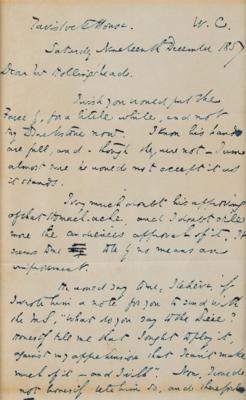 Tavistock House. W.C.
Saturday Nineteenth December 1857
Dear Mr Hollingshead.
I wish you would put the
Farce by, for a little while, and not
try Buckstone now. I know his hands
are full, and – though they were not – I am
almost sure he would not accept it as
it stands.
I very much doubt his approving
of that stomach ache, and I doubt still
more the audience's approval of it. It
seems to me by no means an
improvement.
He would say to me, I believe, if
I wrote him a note for you to send with
the M.S. "What do you say to the Piece?
tell me that I ought to play it,
against my apprehension that I can't make
much of it – and I will." Now, I could
not tell him so, and therefore